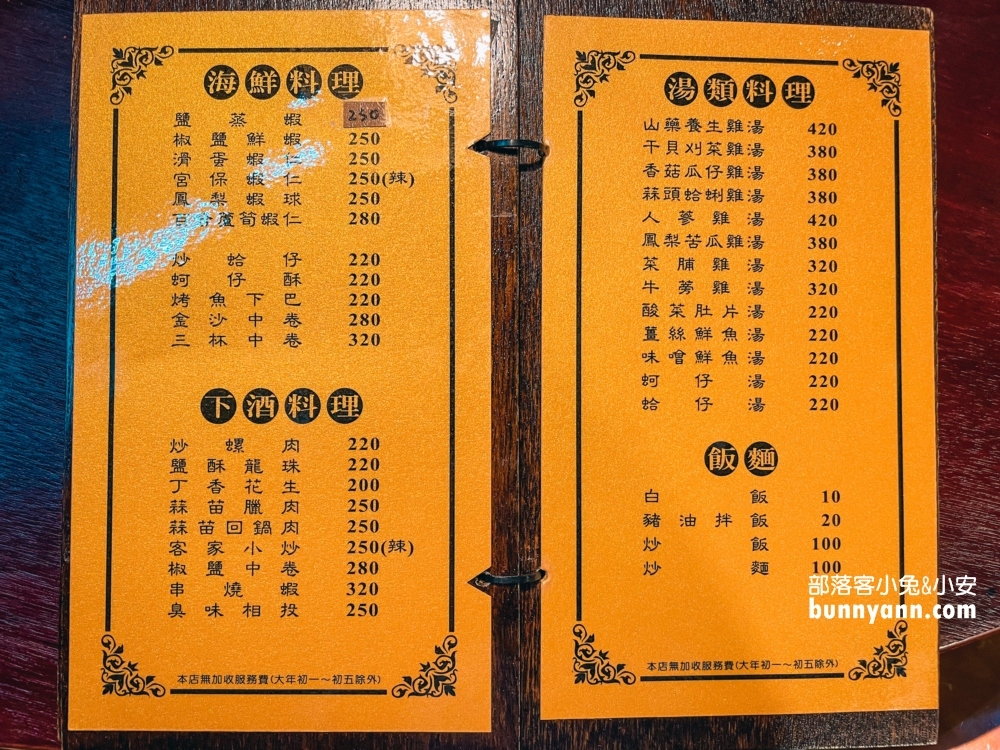 海鮮料理
鹽蒸蝦 250
椒鹽鮮蝦 250
滑蛋蝦仁 250
宮保蝦仁 250(辣)
鳳梨蝦球 250
百合蘆筍蝦仁 280
炒蛤仔 220
蚵仔酥 220
烤魚下巴 220
金沙中卷 280
三杯中卷 320
下酒料理
炒螺肉 220
鹽酥龍珠 220
丁香花生 200
蒜苗臘肉 250
蒜苗回鍋肉 250
客家小炒 250(辣)
椒鹽中卷 280
串燒蝦 320
臭味相投 250
本店無加收服務費(大年初一～初五除外)
湯類料理
山藥養生雞湯 420
干貝刈菜雞湯 380
香菇瓜仔雞湯 380
蒜頭蛤蜊雞湯 380
人蔘雞湯 420
鳳梨苦瓜雞湯 380
菜脯雞湯 320
牛蒡雞湯 320
酸菜肚片湯 220
薑絲鮮魚湯 220
味噌鮮魚湯 220
蚵仔湯 220
蛤仔湯 220
飯麵
白飯 10
豬油拌飯 20
炒飯 100
炒麵 100
本店無加收服務費(大年初一～初五除外)
部落客小兔&小安
bunnyann.com